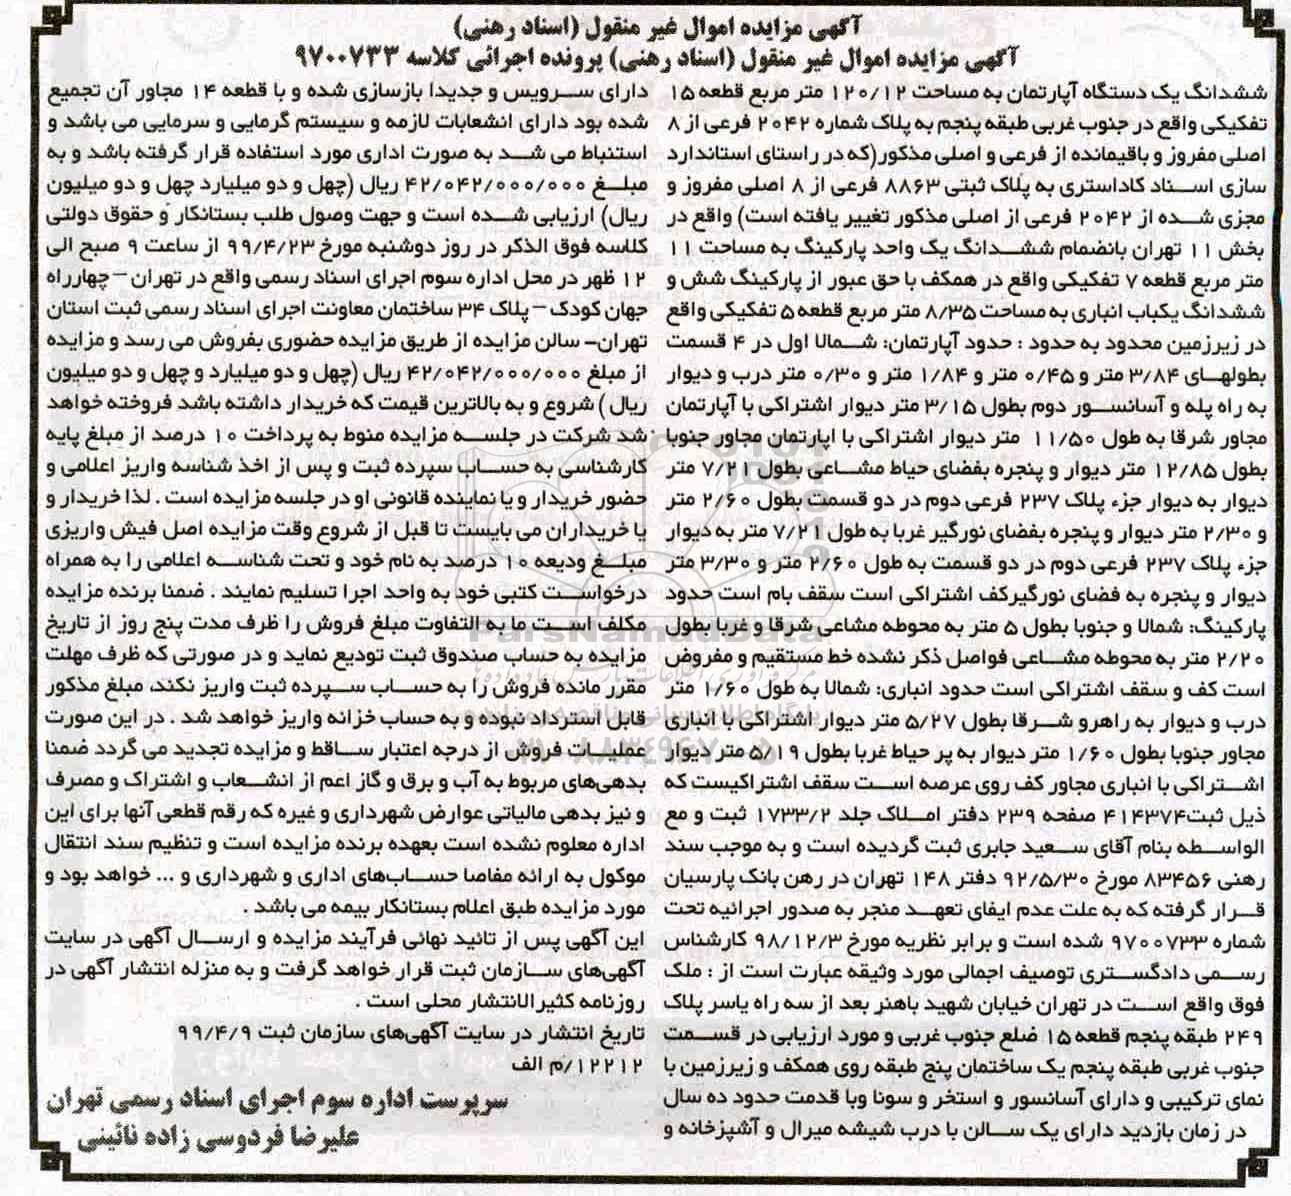 آگهی مزایده اموال غیر منقول (اسناد رهنی)
آگهی مزایده اموال غیر منقول (اسناد رهنی) پرونده اجرائی کلاسه ۹۷۰۰۷۳۳
ششدانگ یک دستگاه آپارتمان به مساحت ۱۲۰/۱۲ متر مربع قطعه ۱۵
تفکیکی واقع در جنوب غربی طبقه پنجم به پلاک شماره ۲۰۴۲ فرعی از ۸
اصلی مفروز و باقیمانده از فرعی و اصلی مذکور(که در راستای استاندارد
سازی اسناد کاداستری به پلاک ثبتی ۸۸۶۳ فرعی از ۸ اصلی مفروز و
مجزی شده از ۲۰۴۲ فرعی از اصلی مذکور تغییر یافته است) واقع در
بخش ۱۱ تهران بانضمام ششدانگ یک واحد پارکینگ به مساحت ۱۱
متر مربع قطعه ۷ تفکیکی واقع در همکف با حق عبور از پارکینگ شش و
ششدانگ یکباب انباری به مساحت ۸/۳۵ متر مربع قطعه ۵ تفکیکی واقع
در زیرزمین محدود به حدود : حدود آپارتمان: شمالا اول در ۴ قسمت
بطولهای ۳/۸۴ متر و ۰/۴۵ متر و ۱/۸۴ متر و ۰/۳۰ متر درب و دیوار
به راه پله و آسانسور دوم بطول ۳/۱۵ متر دیوار اشتراکی با آپارتمان
مجاور شرقا به طول ۱۱/۵۰ متر دیوار اشتراکی با اپارتمان مجاور جنوبا
بطول ۱۲/۸۵ متر دیوار و پنجره بفضای حیاط مشاعی بطول ۷/۲۱ متر
دیوار به دیوار جزء پلاک ۲۳۷ فرعی دوم در دو قسمت بطول ۲/۶۰ متر
و ۲/۳۰ متر دیوار و پنجره بفضای نورگیر غربا به طول ۷/۲۱ متر به دیوار
جزء پلاک ۲۳۷ فرعی دوم در دو قسمت به طول ۲/۶۰ متر و ۳/۳۰ متر
دیوار و پنجره به فضای نورگیرکف اشتراکی است سقف بام است حدود
پارکینگ: شمالا و جنوبا بطول ۵ متر به محوطه مشاعی شرقا و غربا بطول
۲/۲۰ متر به محوطه مشاعی فواصل ذکر نشده خط مستقیم و مفروض
است کف و سقف اشتراکی است حدود انباری: شمالا به طول ۱/۶۰ متر
درب و دیوار به راهرو شرقا بطول ۵/۲۷ متر دیوار اشتراکی با انباری
مجاور جنوبا بطول ۱/۶۰ متر دیوار به پر حیاط غربا بطول ۵/۱۹ متر دیوار
اشتراکی با انباری مجاور کف روی عرصه است سقف اشتراکیست که
ذیل ثبت ۴۱۴۳۷۴ صفحه ۲۳۹ دفتر املاک جلد ۱۷۳۳/۲ ثبت و مع
الواسطه بنام آقای سعید جابری ثبت گردیده است و به موجب سند
رهنی ۸۳۴۵۶ مورخ ۹۲/۵/۳۰ دفتر ۱۴۸ تهران در رهن بانک پارسیان
قرار گرفته که به علت عدم ایفای تعهد منجر به صدور اجرائیه تحت
شماره ۹۷۰۰۷۳۳ شده است و برابر نظریه مورخ ۹۸/۱۲/۳ کارشناس
رسمی دادگستری توصیف اجمالی مورد وثیقه عبارت است از : ملک
فوق واقع است در تهران خیابان شهید باهنر بعد از سه راه یاسر پلاک
۲۴۹ طبقه پنجم قطعه ۱۵ ضلع جنوب غربی و مورد ارزیابی در قسمت
جنوب غربی طبقه پنجم یک ساختمان پنج طبقه روی همکف و زیرزمین با
نمای ترکیبی و دارای آسانسور و استخر و سونا وبا قدمت حدود ده سال
در زمان بازدید دارای یک سالن با درب شیشه میرال و آشپزخانه و
دارای سرویس و جدیدا بازسازی شده و با قطعه ۱۴ مجاور آن تجمیع
شده بود دارای انشعابات لازمه و سیستم گرمایی و سرمایی می باشد و
استنباط می شد به صورت اداری مورد استفاده قرار گرفته باشد و به
مبلغ ۴۲/۰۴۲/۰۰۰/۰۰۰ ریال (چهل و دو میلیارد چهل و دو میلیون
ریال) ارزیابی شده است و جهت وصول طلب بستانکار و حقوق دولتی
کلاسه فوق الذکر در روز دوشنبه مورخ ۹۹/۴/۲۳ از ساعت ۹ صبح الی
۱۲ ظهر در محل اداره سوم اجرای اسناد رسمی واقع در تهران – چهارراه
جهان کودک – پلاک ۳۴ ساختمان معاونت اجرای اسناد رسمی ثبت استان
تهران- سالن مزایده از طریق مزایده حضوری بفروش می رسد و مزایده
از مبلغ ۴۲/۰۴۲/۰۰۰/۰۰۰ ریال (چهل و دو میلیارد و چهل و دو میلیون
ریال ) شروع و به بالاترین قیمت که خریدار داشته باشد فروخته خواهد
شد شرکت در جلسه مزایده منوط به پرداخت ۱۰ درصد از مبلغ پایه
کارشناسی به حساب سپرده ثبت و پس از اخذ شناسه واریز اعلامی و
حضور خریدار و یا نماینده قانونی او در جلسه مزایده است . لذا خریدار و
یا خریداران می بایست تا قبل از شروع وقت مزایده اصل فیش واریزی
مبلغ ودیعه ۱۰ درصد به نام خود و تحت شناسه اعلامی را به همراه
درخواست کتبی خود به واحد اجرا تسلیم نمایند . ضمنا برنده مزایده
مکلف است ما به التفاوت مبلغ فروش را ظرف مدت پنج روز از تاریخ
مزایده به حساب صندوق ثبت تودیع نماید و در صورتی که ظرف مهلت
مقرر مانده فروش را به حساب سپرده ثبت واریز نکند، مبلغ مذکور
قابل استرداد نبوده و به حساب خزانه واریز خواهد شد . در این صورت
عملیات فروش از درجه اعتبار ساقط و مزایده تجدید می گردد ضمنا
بدهی‌های مربوط به آب و برق و گاز اعم از انشعاب و اشتراک و مصرف
و نیز بدهی مالیاتی عوارض شهرداری و غیره که رقم قطعی آنها برای این
اداره معلوم نشده است بعهده برنده مزایده است و تنظیم سند انتقال
موکول به ارائه مفاصا حساب‌های اداری و شهرداری و ... خواهد بود و
مورد مزایده طبق اعلام بستانکار بیمه می باشد .
این آگهی پس از تائید نهائی فرآیند مزایده و ارسال آگهی در سایت
آگهی‌های سازمان ثبت قرار خواهد گرفت و به منزله انتشار آگهی در
روزنامه کثیرالانتشار محلی است .
تاریخ انتشار در سایت آگهی‌های سازمان ثبت ۹۹/۴/۹
۱۲۲۱۲/م الف
سرپرست اداره سوم اجرای اسناد رسمی تهران
علیرضا فردوسی زاده نائینی
ParsNamadData